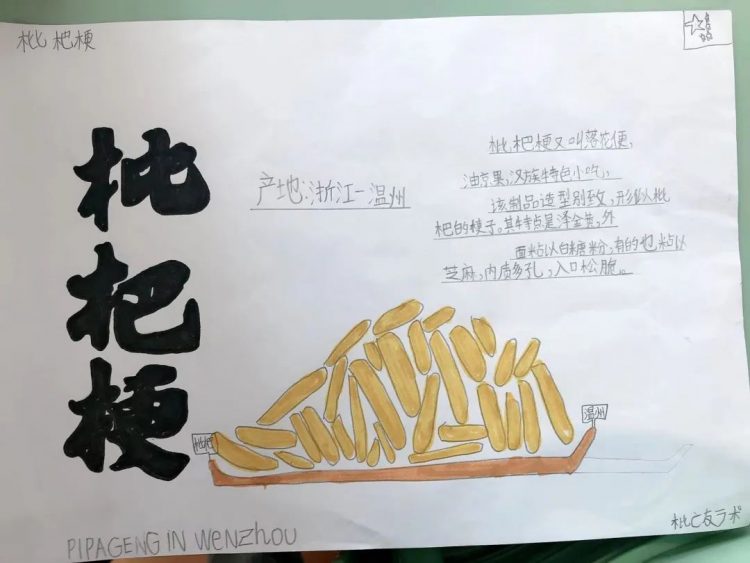 枇杷梗
枇杷梗
产地:浙江-温州
枇杷梗又叫落花便,
油京果,汉族特色小吃,
该制品造型别致,形似枇
杷的梗子。其特点是泽金黄,外
面粘以白糖粉,有的也粘以
芝麻,内质多孔,入口松脆。
枇杷
温州
PIPAGENG IN WenZhou